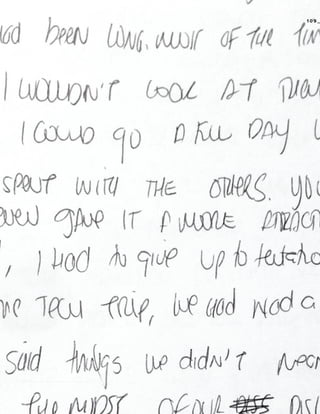 had been long. most of the tim
I wouldn't look at them
I could go a full day w
spent with the others. you
even gave it a more attract
, I had to give up to
me tech trip, we had had a
said things we didn't mean
the midst of our dis